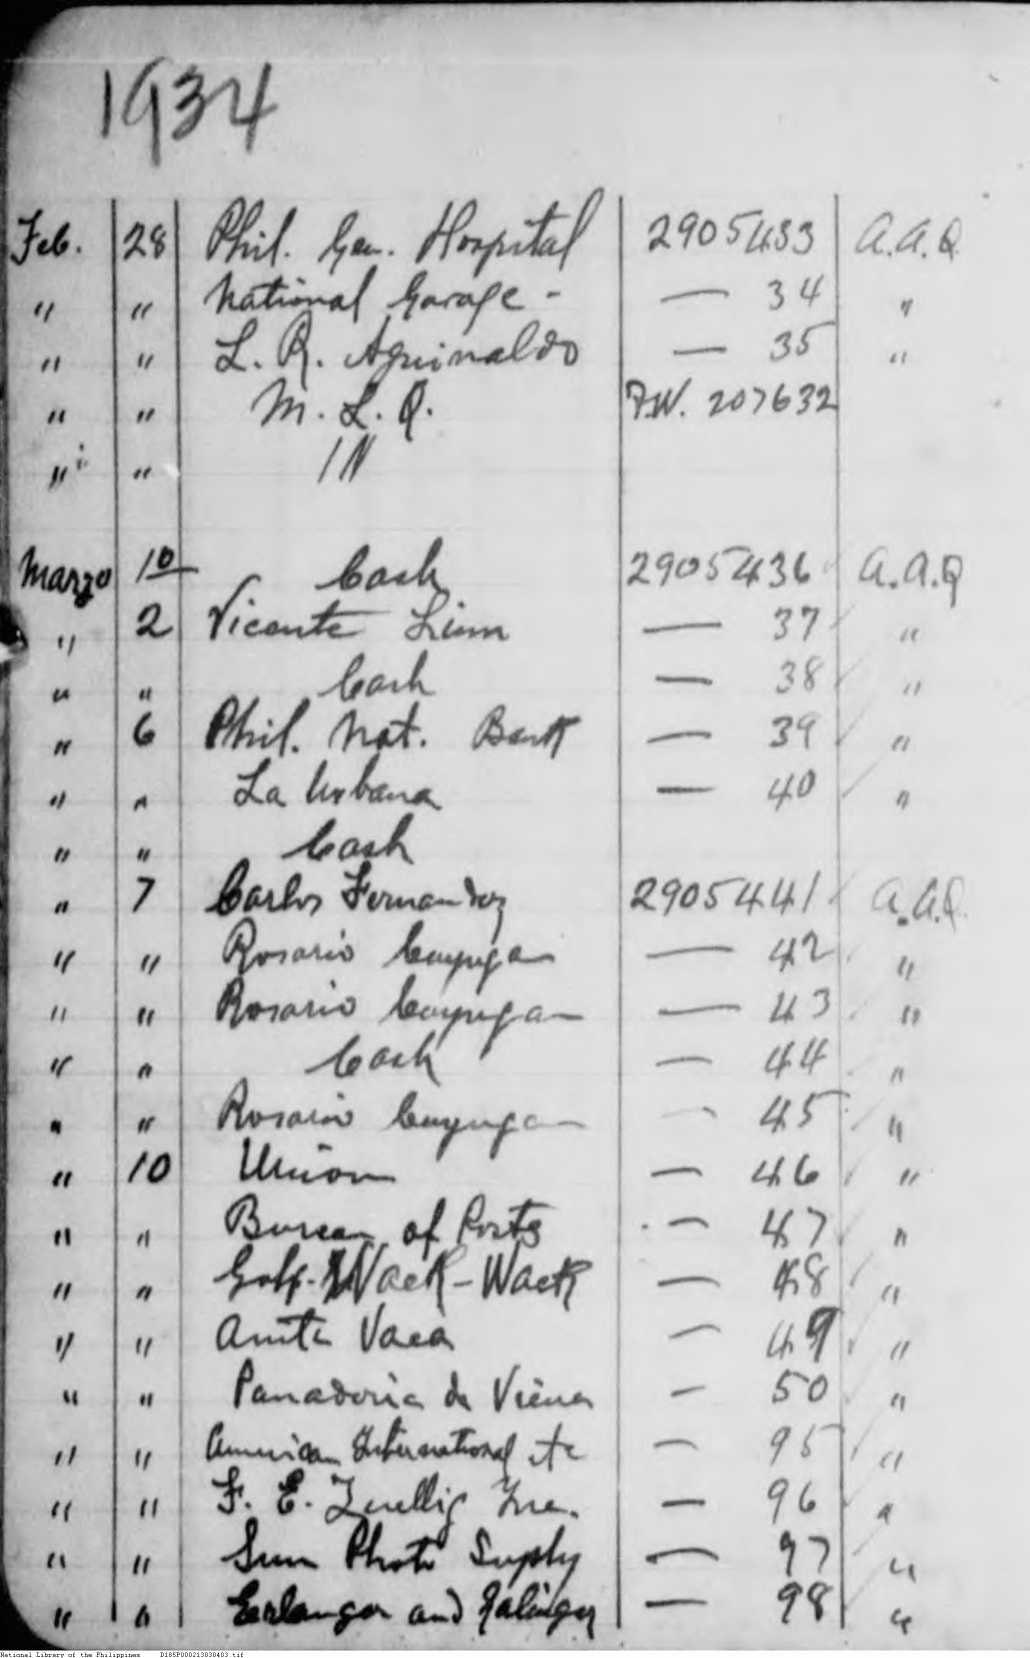 1934
Feb. 28 Phil. Gen. Hospital 2905433 A.A.Q.
" " National Garage - — 34 "
" " L. R. Aguinaldo — 35 "
" " M. L. Q. P.W. 207632
" " IN
Marzo 10 Cash 2905436 A.A.Q
" 2 Vicente Lim — 37 "
" " Cash — 38 "
" 6 Phil. Nat. Bank — 39 "
" " La Urbana — 40 "
" " Cash
" 7 Carlos Fernandez 2905441 A.A.Q.
" " Rosario Cuyugan — 42 "
" " Rosario Cuyugan — 43 "
" " Cash — 44 "
" " Rosario Cuyugan — 45 "
" 10 Union — 46 "
" " Bureau of Posts — 47 "
" " Golf - Wack - Wack — 48 "
" " Anita Vaca — 49 "
" " Panaderia de Viena — 50 "
" " American International etc — 95 "
" " F. E. Zuellig Inc. — 96 "
" " Sun Photo Supply — 97 "
" " Erlanger and Galinger — 98 "
National Library of the Philippines D185P000213838403.tif